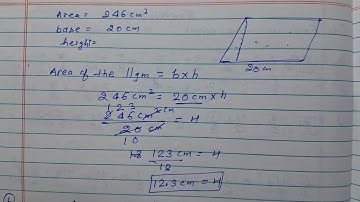 Area = 246 cm²
base = 20 cm
height=
20 cm
Area of the ||gm = b×h
246 cm² = 20 cm × h
123
246 cm² cm = H
20 cm
10
123 cm = H
10
12.3 cm = H